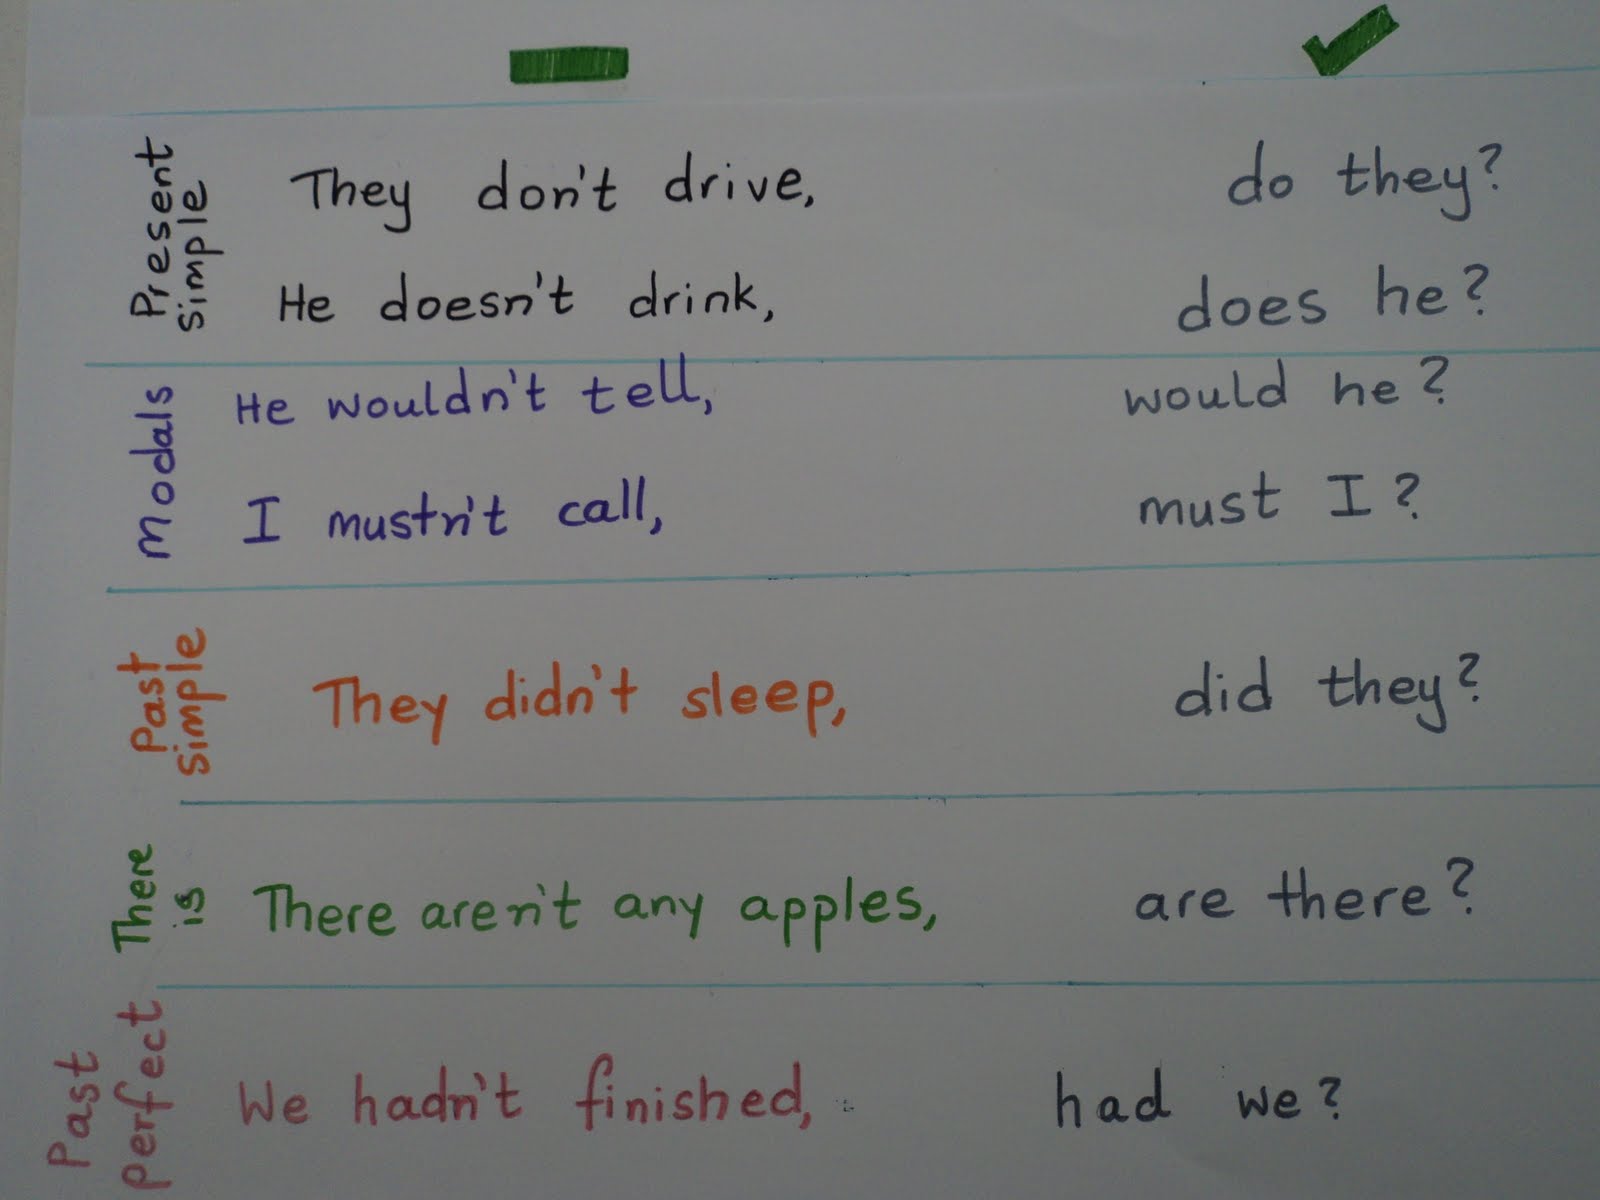 Present simple
They don't drive, do they?
He doesn't drink, does he?
Modals
He wouldn't tell, would he?
I mustn't call, must I?
Past simple
They didn't sleep, did they?
There is
There aren't any apples, are there?
Past perfect
We hadn't finished, had we?